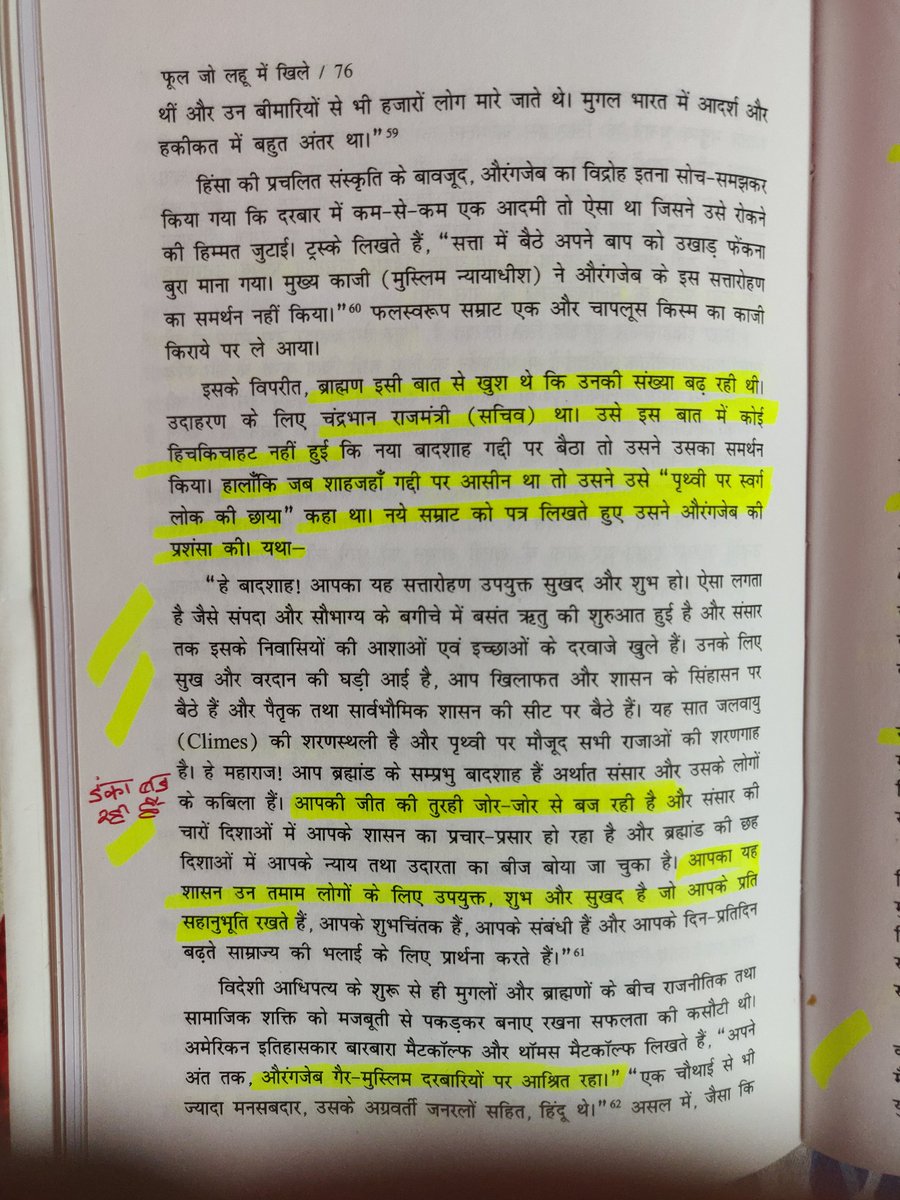 फूल जो लहू में खिले / 76
थीं और उन बीमारियों से भी हजारों लोग मारे जाते थे। मुगल भारत में आदर्श और
हकीकत में बहुत अंतर था।”59
हिंसा की प्रचलित संस्कृति के बावजूद, औरंगजेब का विद्रोह इतना सोच-समझकर
किया गया कि दरबार में कम-से-कम एक आदमी तो ऐसा था जिसने उसे रोकने
की हिम्मत जुटाई। ट्रस्के लिखते हैं, “सत्ता में बैठे अपने बाप को उखाड़ फेंकना
बुरा माना गया। मुख्य काजी (मुस्लिम न्यायाधीश) ने औरंगजेब के इस सत्तारोहण
का समर्थन नहीं किया।”60 फलस्वरूप सम्राट एक और चापलूस किस्म का काजी
किराये पर ले आया।
इसके विपरीत, ब्राह्मण इसी बात से खुश थे कि उनकी संख्या बढ़ रही थी।
उदाहरण के लिए चंद्रभान राजमंत्री (सचिव) था। उसे इस बात में कोई
हिचकिचाहट नहीं हुई कि नया बादशाह गद्दी पर बैठा तो उसने उसका समर्थन
किया। हालाँकि जब शाहजहाँ गद्दी पर आसीन था तो उसने उसे “पृथ्वी पर स्वर्ग
लोक की छाया” कहा था। नये सम्राट को पत्र लिखते हुए उसने औरंगजेब की
प्रशंसा की। यथा–
“हे बादशाह! आपका यह सत्तारोहण उपयुक्त सुखद और शुभ हो। ऐसा लगता
है जैसे संपदा और सौभाग्य के बगीचे में बसंत ऋतु की शुरुआत हुई है और संसार
तक इसके निवासियों की आशाओं एवं इच्छाओं के दरवाजे खुले हैं। उनके लिए
सुख और वरदान की घड़ी आई है, आप खिलाफत और शासन के सिंहासन पर
बैठे हैं और पैतृक तथा सार्वभौमिक शासन की सीट पर बैठे हैं। यह सात जलवायु
(Climes) की शरणस्थली है और पृथ्वी पर मौजूद सभी राजाओं की शरणगाह
है। हे महाराज! आप ब्रह्मांड के सम्प्रभु बादशाह हैं अर्थात संसार और उसके लोगों
के कबिला हैं। आपकी जीत की तुरही जोर-जोर से बज रही है और संसार की
चारों दिशाओं में आपके शासन का प्रचार-प्रसार हो रहा है और ब्रह्मांड की छह
दिशाओं में आपके न्याय तथा उदारता का बीज बोया जा चुका है। आपका यह
शासन उन तमाम लोगों के लिए उपयुक्त, शुभ और सुखद है जो आपके प्रति
सहानुभूति रखते हैं, आपके शुभचिंतक हैं, आपके संबंधी हैं और आपके दिन-प्रतिदिन
बढ़ते साम्राज्य की भलाई के लिए प्रार्थना करते हैं।”61
विदेशी आधिपत्य के शुरू से ही मुगलों और ब्राह्मणों के बीच राजनीतिक तथा
सामाजिक शक्ति को मजबूती से पकड़कर बनाए रखना सफलता की कसौटी थी।
अमेरिकन इतिहासकार बारबारा मैटकॉल्फ और थॉमस मैटकॉल्फ लिखते हैं, “अपने
अंत तक, औरंगजेब गैर-मुस्लिम दरबारियों पर आश्रित रहा।” “एक चौथाई से भी
ज्यादा मनसबदार, उसके अग्रवर्ती जनरलों सहित, हिंदू थे।”62 असल में, जैसा कि
डंका बज
रहा है